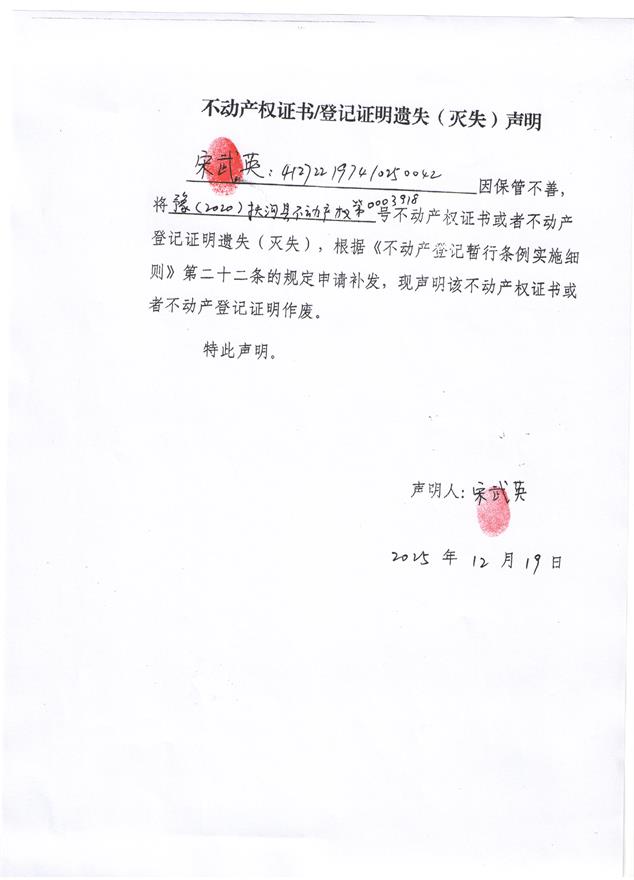 不动产权证书/登记证明遗失（灭失）声明
宋武英：412722197410250042因保管不善，
将豫（2020）扶沟县不动产权第0003918号不动产权证书或者不动产
登记证明遗失（灭失），根据《不动产登记暂行条例实施细
则》第二十二条的规定申请补发，现声明该不动产权证书或
者不动产登记证明作废。
特此声明。
声明人：宋武英
2025年12月19日